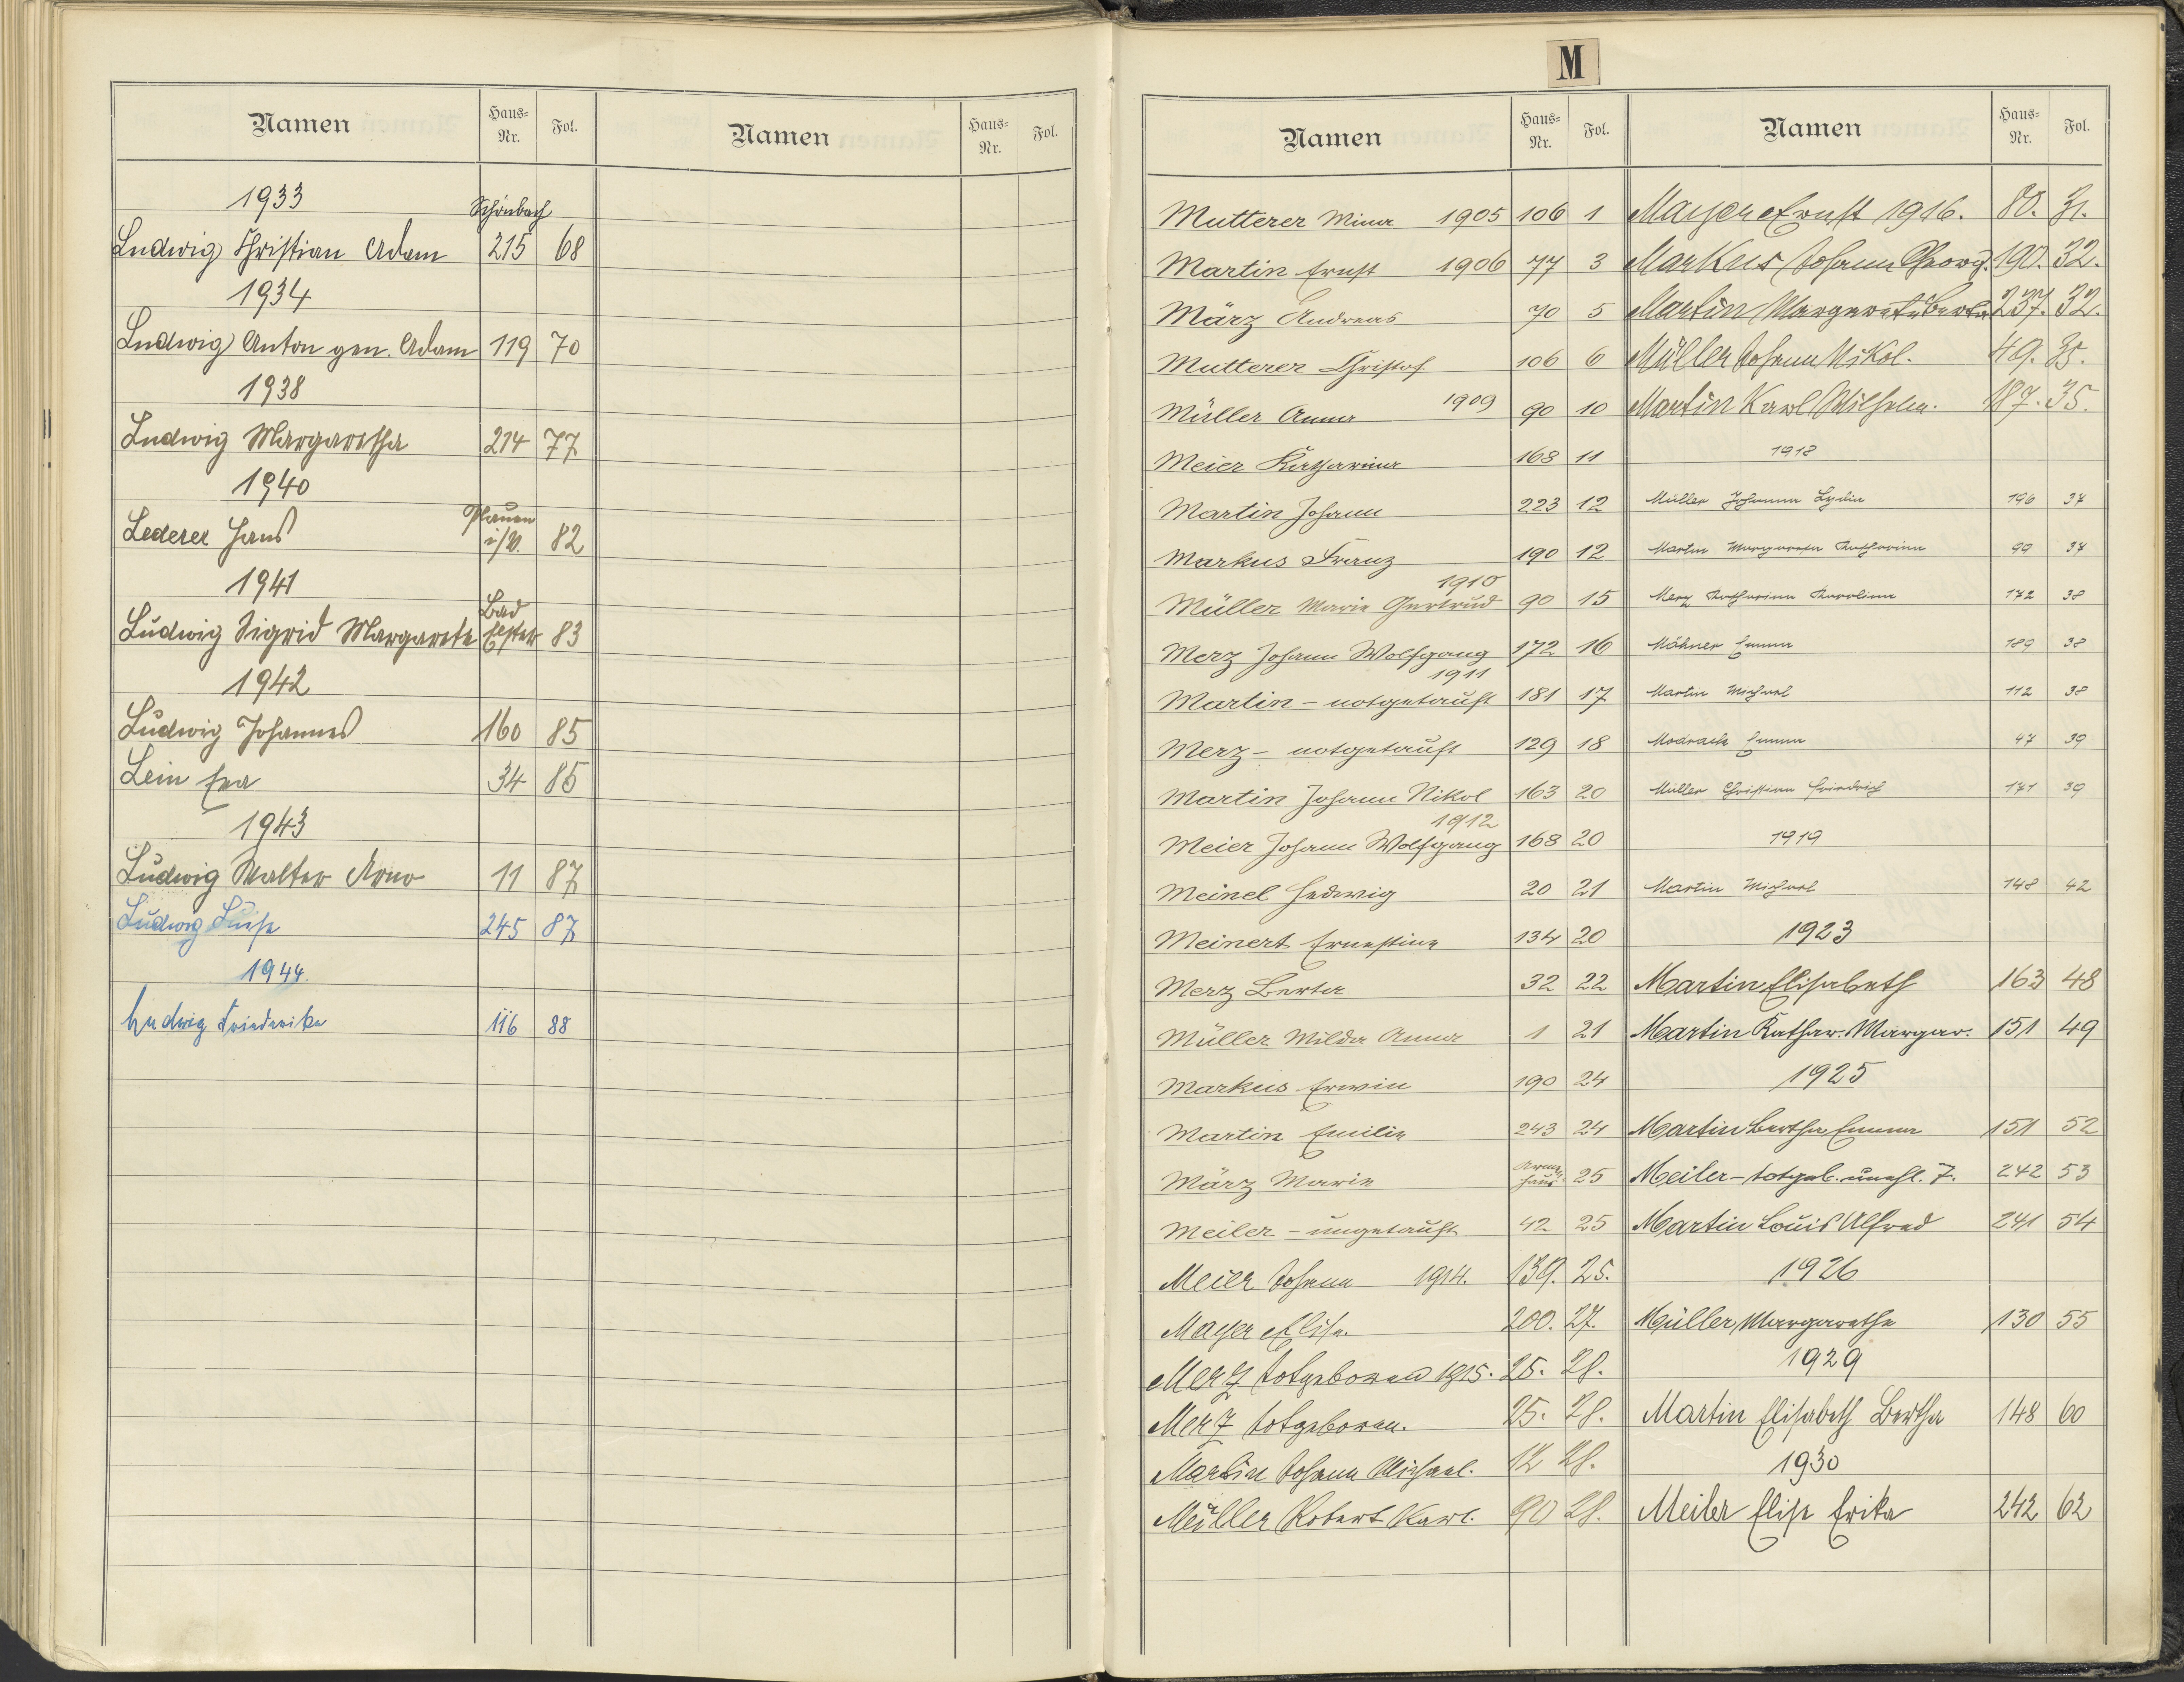 Namen Haus-Nr. Fol. Namen Haus-Nr. Fol.
1933
Schönbach
Ludwig Christian Adam 215 68
1934
Ludwig Anton gen. Adam 119 70
1938
Ludwig Margaretha 214 77
1940
Lederer Hans Plauen i/V. 82
1941
Ludwig Sigrid Margarete Bad Elster 83
1942
Ludwig Johannes 160 85
Lein Eva 34 85
1943
Ludwig Walter Arno 11 87
Ludwig Luise 245 87
1944.
Ludwig Friederike 116 88
M
Namen Haus-Nr. Fol.
Mutterer Mina 1905 106 1
Martin Ernst 1906 77 3
März Andreas 70 5
Mutterer Christof 106 6
Müller Anna 1909 90 10
Meier Katharina 168 11
Martin Johann 223 12
Markus Franz 190 12
1910
Müller Marie Gertrud 90 15
Merz Johann Wolfgang 172 16
1911
Martin - notgetauft 181 17
Merz - notgetauft 129 18
Martin Johann Nikol 163 20
1912
Meier Johann Wolfgang 168 20
Meinel Hedwig 20 21
Meinert Ernestine 134 20
Merz Berta 32 22
Müller Milda Anna 1 21
Markus Erwin 190 24
Martin Emilie 243 24
März Marie Armenhaus 25
Meiler - ungetauft 42 25
Meier Johann 1914. 139. 25.
Mayer Elise. 200. 27.
Merz totgeboren 1915. 25. 28.
Merz totgeboren. 25. 28.
Martin Johann Michael. 12 28.
Müller Robert Karl. 90 28.
Namen Haus-Nr. Fol.
Mayer Ernst 1916. 80. 31.
Markus Johann Georg. 190. 32.
Martin Margaret Berta 237. 32.
Müller Johann Nikol. 49. 35.
Martin Karl Wilhelm. 187. 35.
1918
Müller Johanna Lydia 196 37
Martin Margareta Katharina 99 37
Merz Katharina Karolina 172 38
Mähner Emma 189 38
Martin Michael 112 38
Modrack Emma 47 39
Müller Christian Friedrich 171 39
1919
Martin Michael 148 42
1923
Martin Elisabeth 163 48
Martin Kathar. Margar. 151 49
1925
Martin Bertha Emma 151 52
Meiler - totgeb. unehl. T. 242 53
Martin Louis Alfred 241 54
1926
Müller Margarethe 130 55
1929
Martin Elisabeth Bertha 148 60
1930
Meiler Elise Erika 242 62